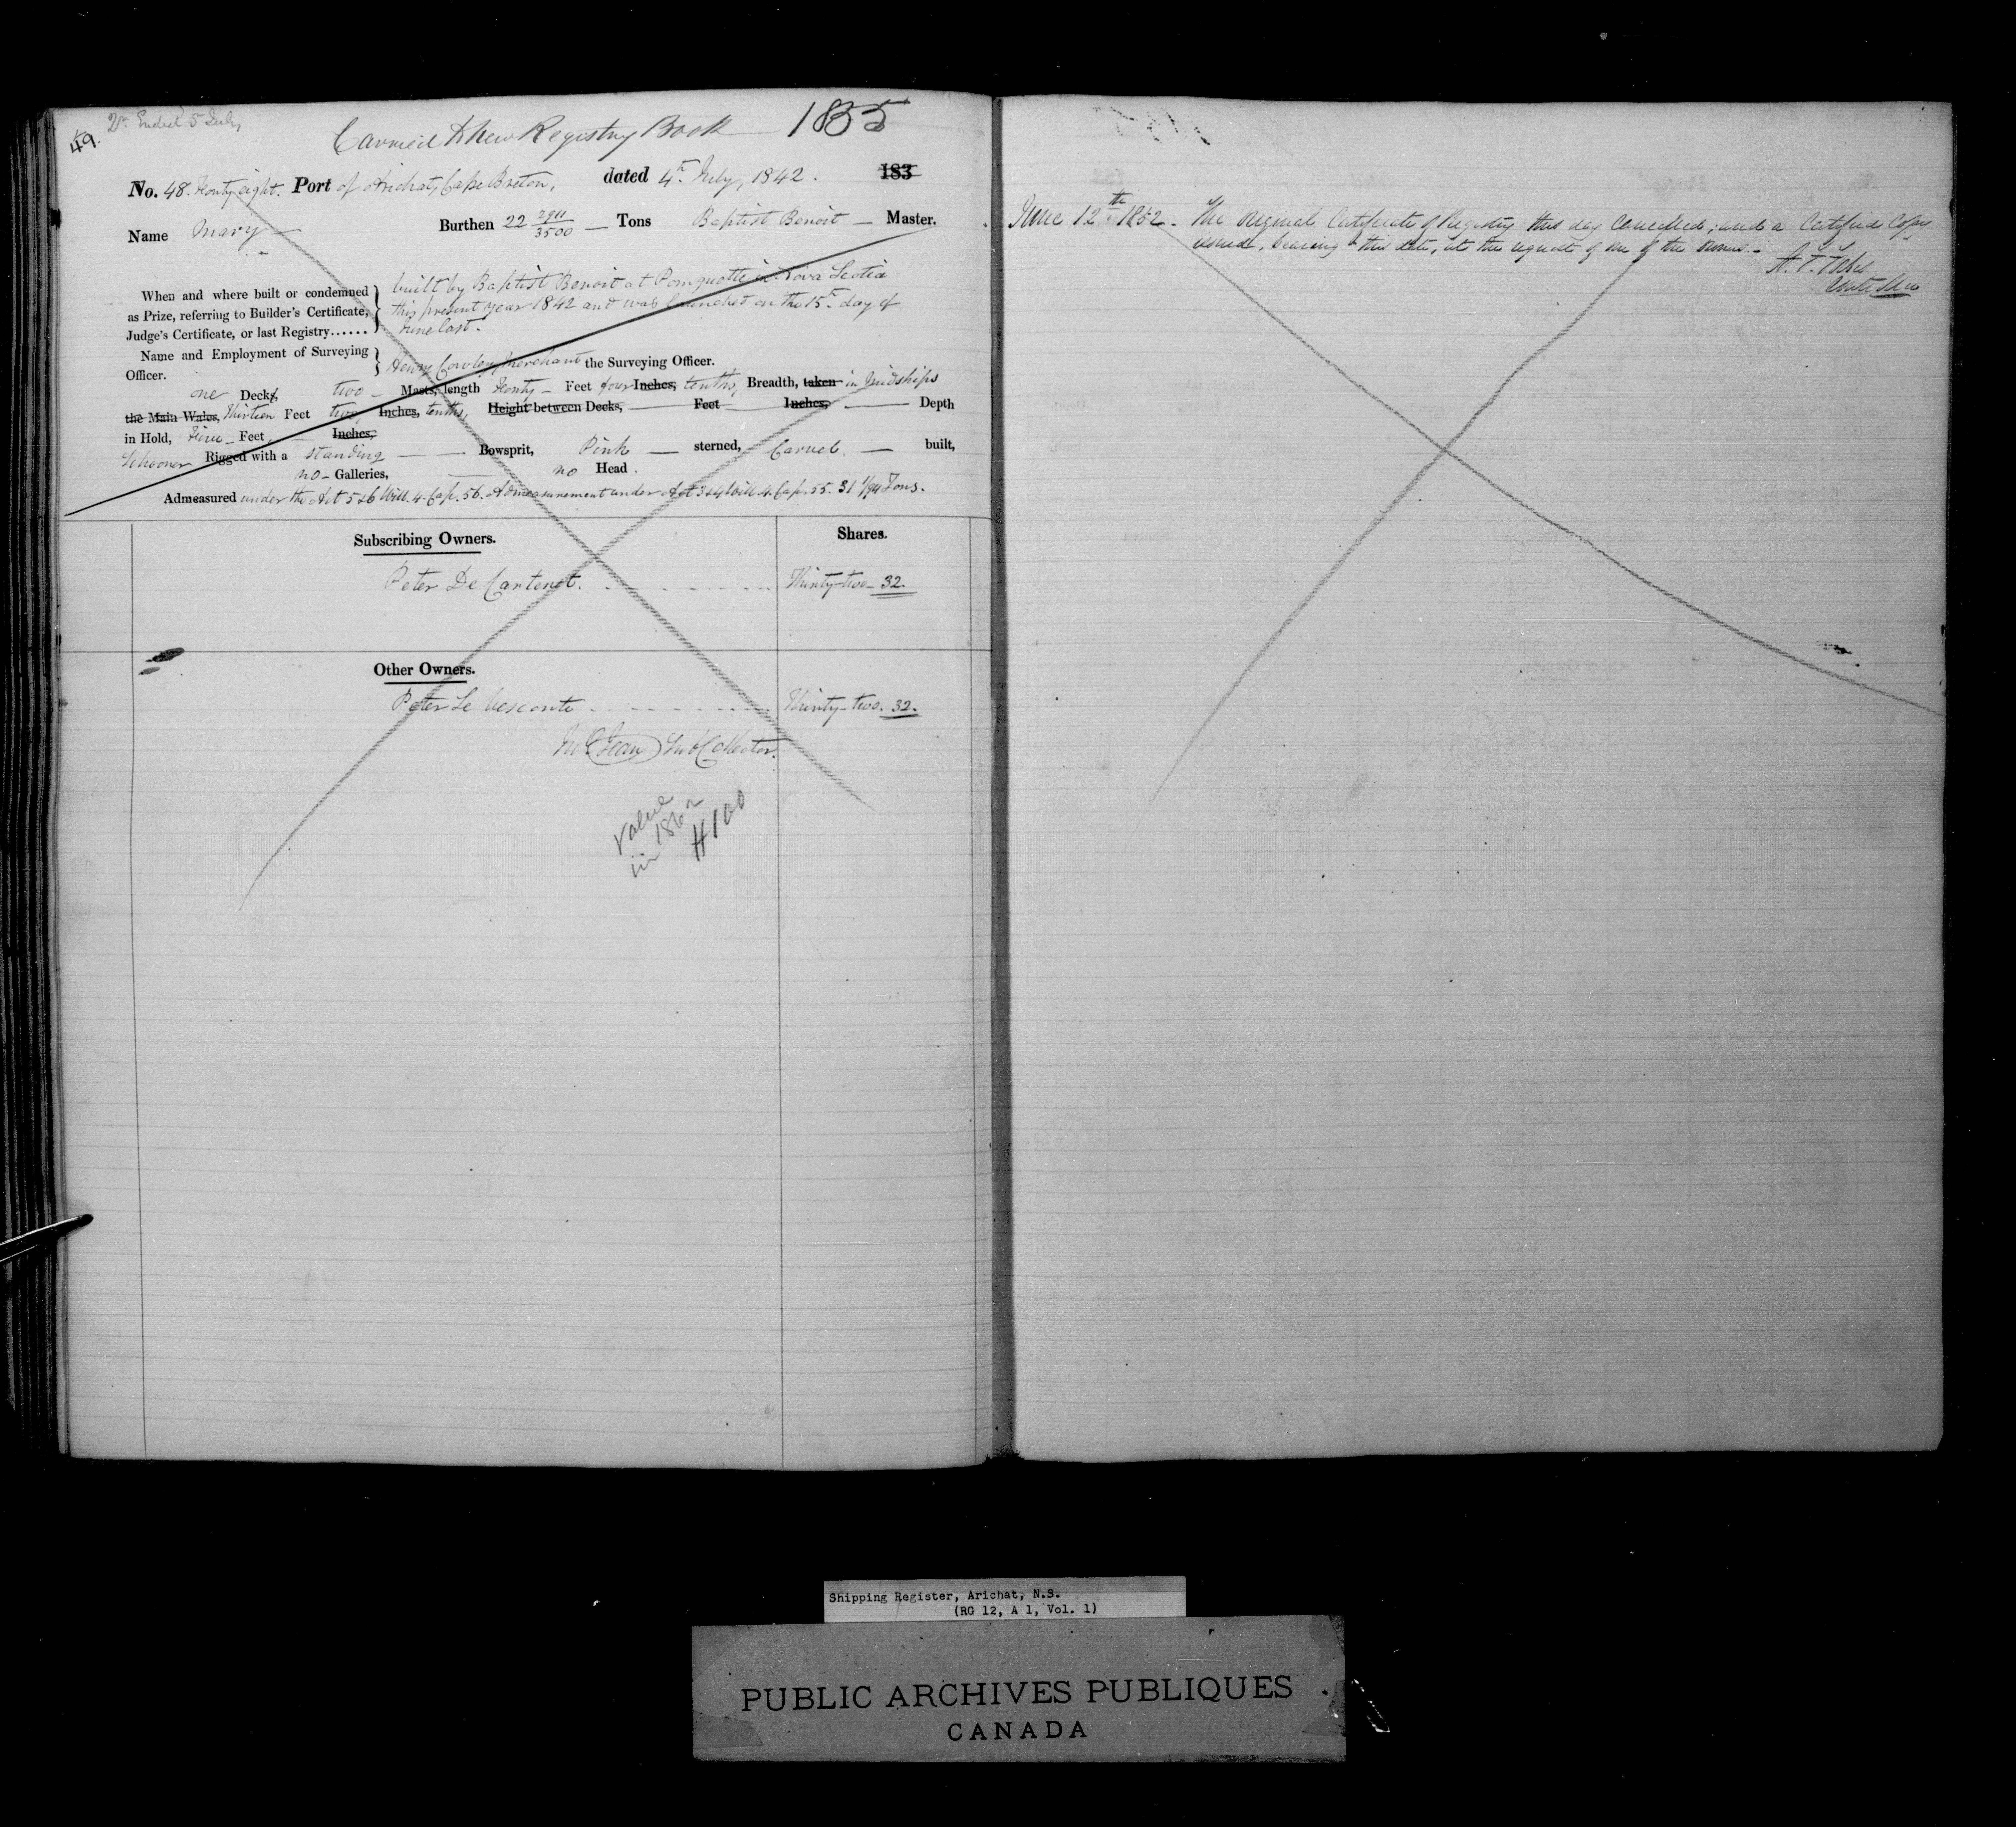 49.
Qr. Ended 5 July
Carried to new Registry Book 1855
No. 48. Forty eight. Port of Arichat, Cape Breton, dated 4th. July, 1842. 183
Name Mary Burthen 22 2911/3500 Tons Baptist Benoit Master.
When and where built or condemned as Prize, referring to Builder's Certificate, Judge's Certificate, or last Registry......
built by Baptist Benoit at Pomquette in Nova Scotia
this present year 1842 and was launched on the 15th. day of
June last.
Name and Employment of Surveying Officer.
Henry Cowley, Merchant the Surveying Officer.
one Decks, two Masts, length Forty Feet four Inches, tenths, Breadth, taken in Midships
the Main Wales, Thirteen Feet two Inches, tenths, Height between Decks, Feet Inches, Depth
in Hold, Feet, Inches,
Schooner Rigged with a standing Bowsprit, Pink sterned, Carvel built,
no Galleries, no Head.
Admeasured under the Act 5 & 6 Will. 4. Cap. 56. Admeasurement under Act 3 & 4 Will. 4. Cap. 55. 31 1/94 Tons.
Subscribing Owners. Shares.
Peter De Carteret. Thirty-two 32.
Other Owners.
Peter Le Vesconte Thirty-two. 32.
Jean Sub Collector.
Value
in 1862
$100
June 12th 1852. The original Certificate of Registry this day cancelled; and a Certified Copy
issued, bearing this date, at the request of one of the owners.
Shipping Register, Arichat, N.S.
(RG 12, A 1, Vol. 1)
PUBLIC ARCHIVES PUBLIQUES
CANADA